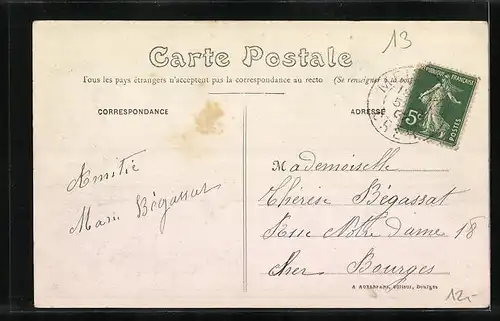 13
Carte Postale
Tous les pays étrangers n'acceptent pas la correspondance au recto (Se renseigner à la
CORRESPONDANCE
ADRESSE
RÉPUBLIQUE FRANÇAISE
5c
POSTES
Amitié
Marie Bégassat
Mademoiselle
Thérèse Bégassat
Rue Notre Dame 18
Cher Bourges
Editeur, Bourges
12,-